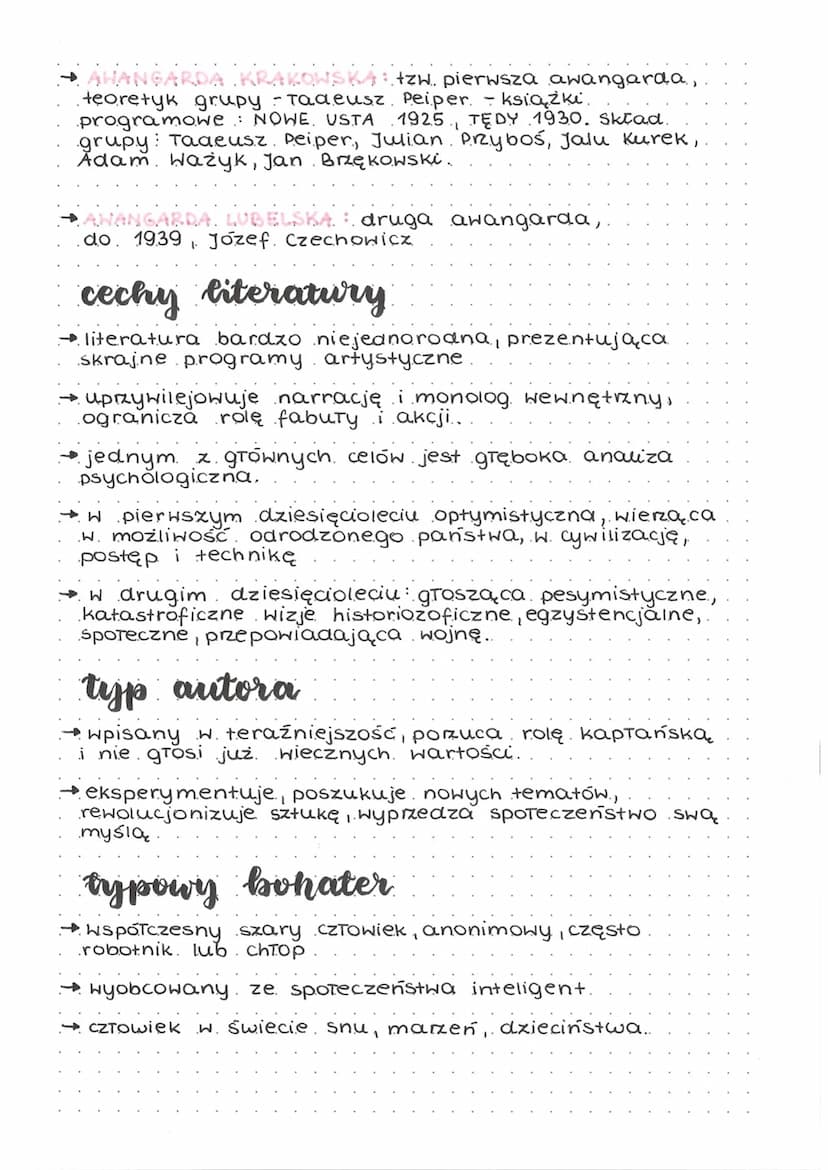 → AWANGARDA KRAKOWSKA: tzw. pierwsza awangarda,
teoretyk grupy - Tadeusz Peiper - książki
programowe: NOWE USTA 1925, TĘDY 1930. Skład
grupy: Tadeusz Peiper, Julian Przyboś, Jalu Kurek,
Adam Ważyk, Jan Brzękowski.
→ AWANGARDA LUBELSKA: druga awangarda,
do 1939, Józef Czechowicz
cechy literatury
→ literatura bardzo niejednorodna, prezentująca
skrajne programy artystyczne
→ uprzywilejowuje narrację i monolog wewnętrzny,
ogranicza rolę fabuły i akcji.
→ jednym z głównych celów jest głęboka analiza
psychologiczna.
→ w pierwszym dziesięcioleciu optymistyczna, wierząca
w możliwość odrodzonego państwa, w cywilizację,
postęp i technikę
→ w drugim dziesięcioleciu: głosząca pesymistyczne,
katastroficzne wizje historiozoficzne, egzystencjalne,
społeczne, przepowiadająca wojnę.
typ autora
→ wpisany w teraźniejszość, porzuca rolę kapłańską
i nie głosi już wiecznych wartości.
→ eksperymentuje, poszukuje nowych tematów,
rewolucjonizuje sztukę, wyprzedza społeczeństwo swą
myślą
typowy bohater
→ współczesny szary człowiek, anonimowy, często
robotnik lub chłop
→ wyobcowany ze społeczeństwa inteligent
→ człowiek w świecie snu, marzeń, dzieciństwa.